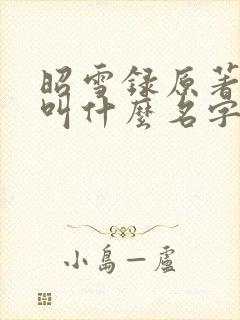 昭雪録原著
叫什麼名字
小島一廬